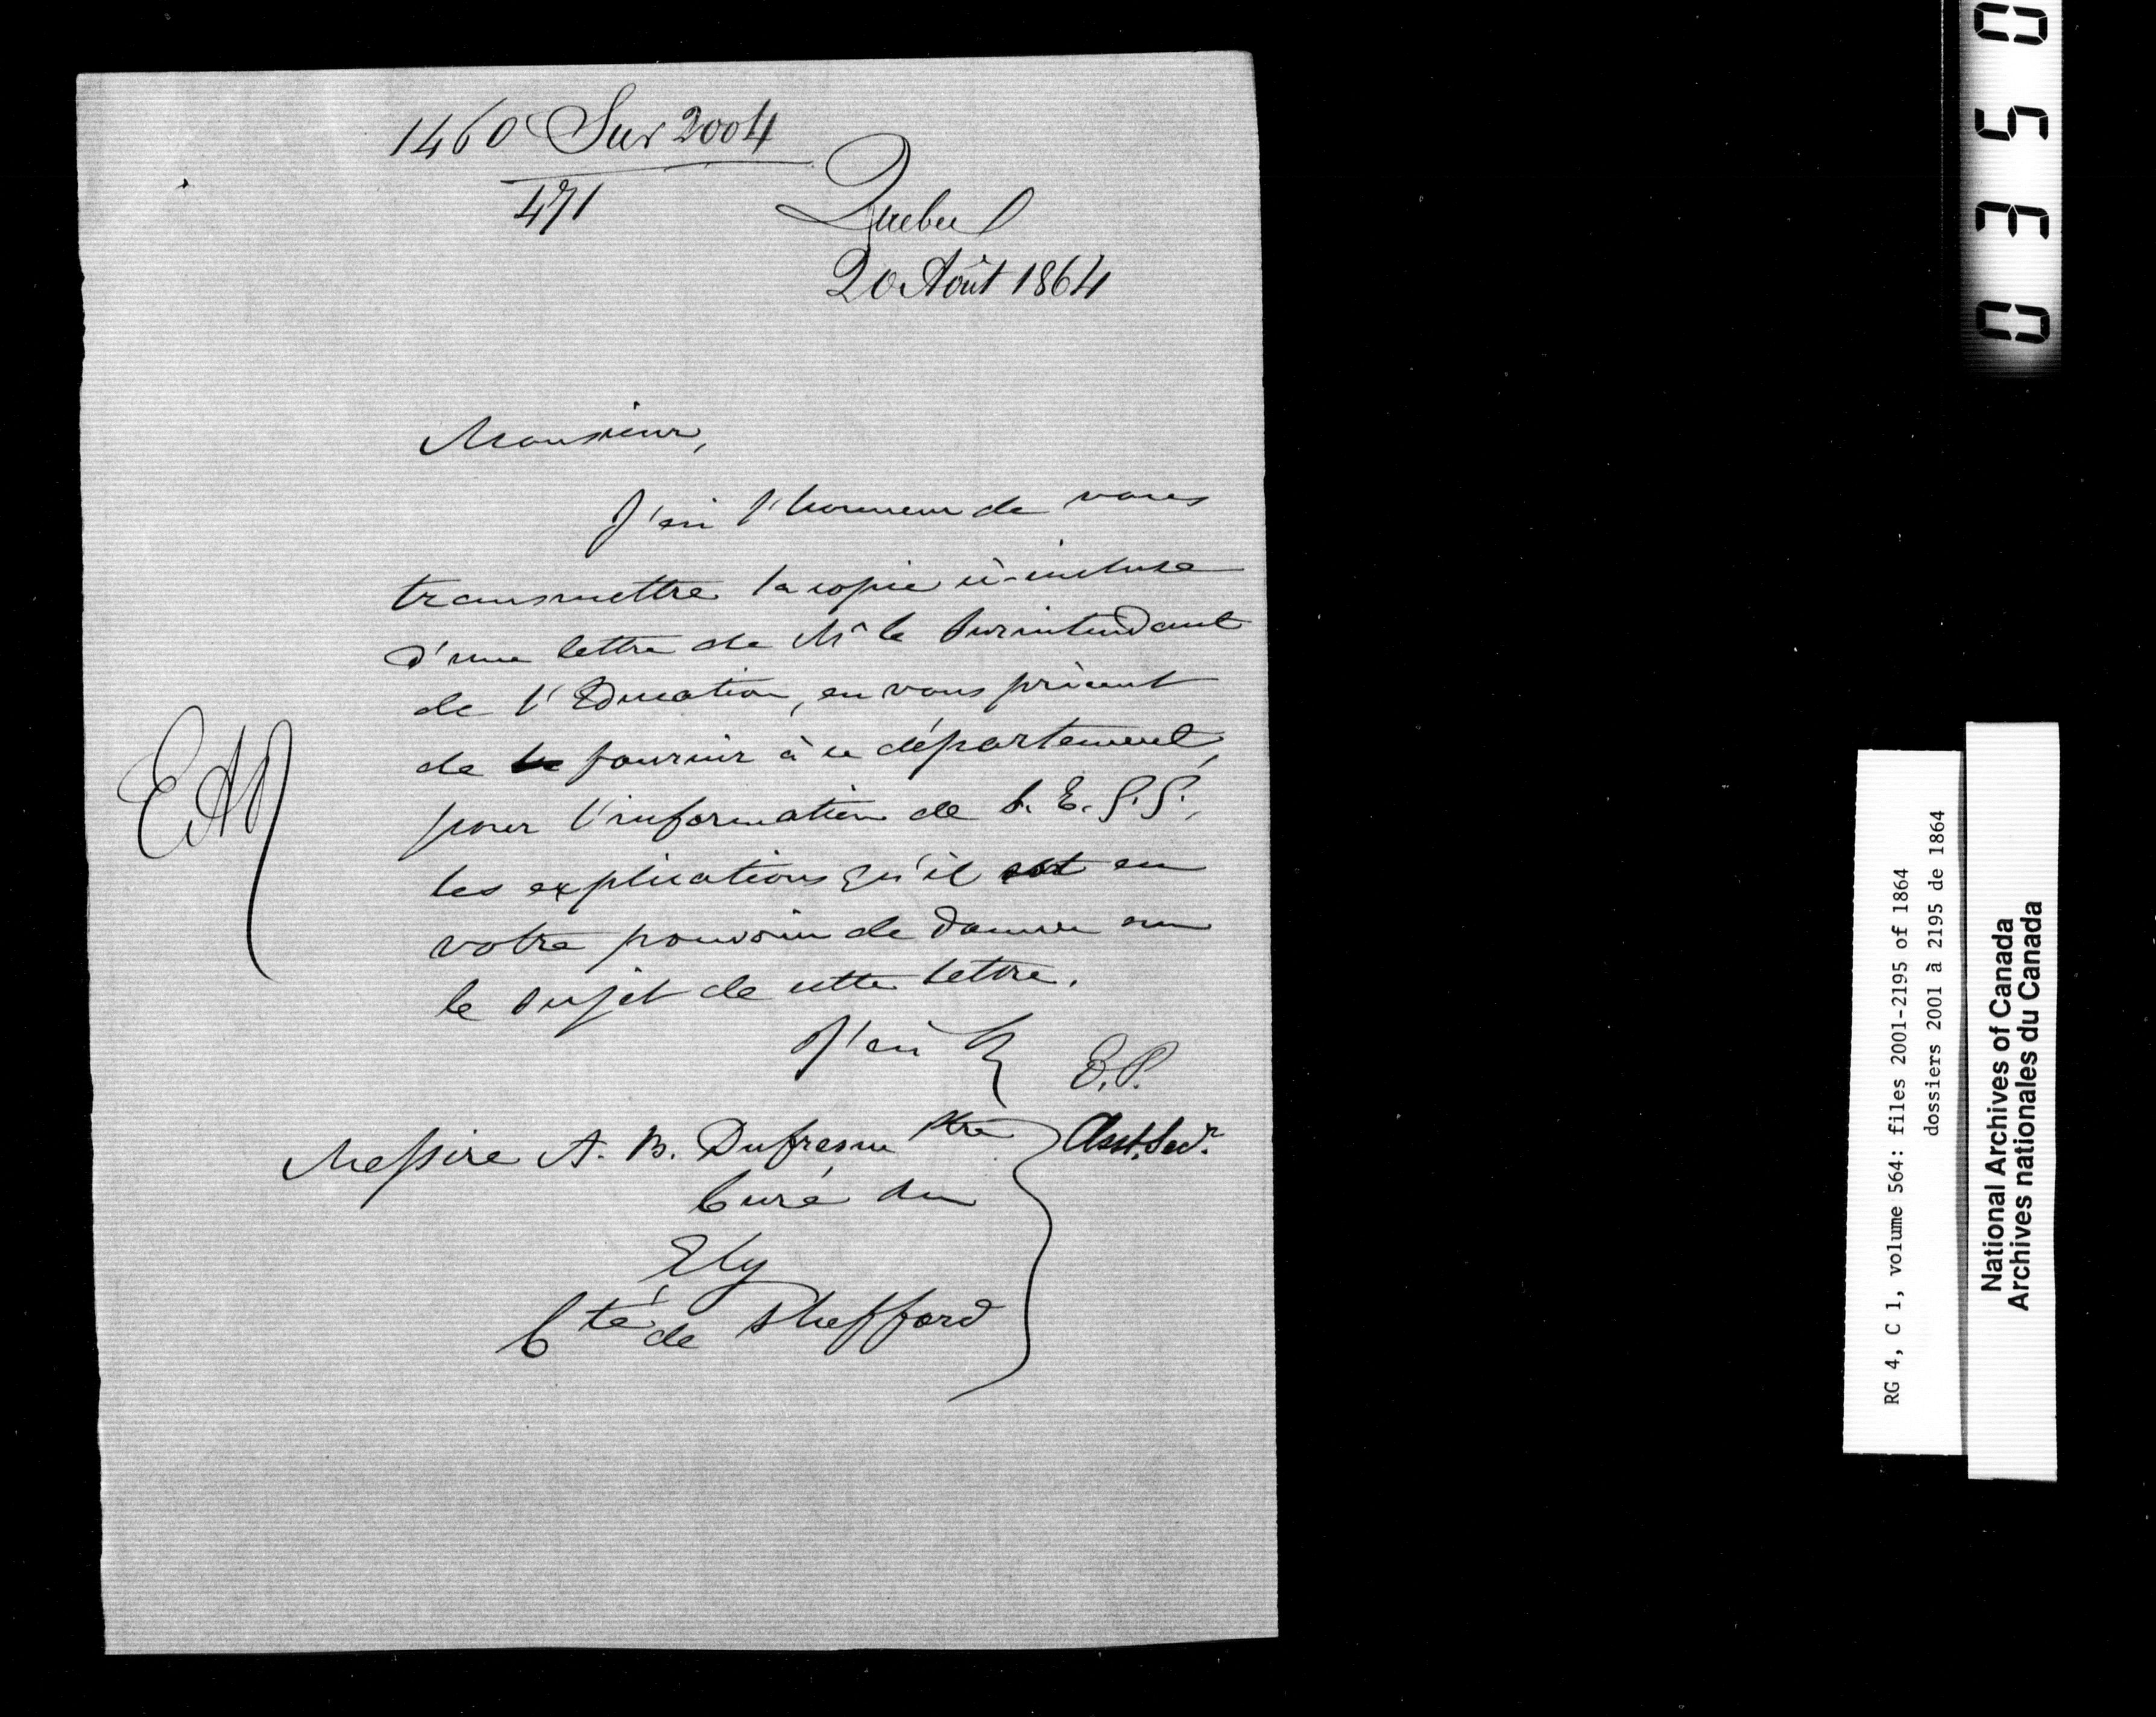 1460 Sur 2004
471
Quebec
20 Août 1864
Monsieur,
J'ai l'honneur de vous
transmettre la copie ci-incluse
d'une lettre de Mr le Surintendant
de l'Education, en vous priant
de fournir à ce département,
pour l'information de S. E. G. G.,
les explications qu'il est en
votre pouvoir de donner sur
le sujet de cette lettre.
J'ai &
E. P.
Asst. Secr.
Messire A. B. Dufresne Ptre
Curé de
Ely
Cté de Shefford
0350
RG 4, C 1, volume 564: files 2001-2195 of 1864
dossiers 2001 à 2195 de 1864
National Archives of Canada
Archives nationales du Canada